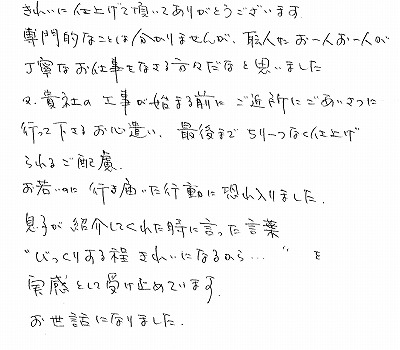 きれいに仕上げて頂いてありがとうございます.
専門的なことは分かりませんが、職人さんお一人お一人が
丁寧なお仕事をなさる方々だなと思いました
又、貴社の工事が始まる前に ご近所にごあいさつに
行って下さるお心遣い、最後まで ちり一つなく仕上げ
られるご配慮.
お若いのに 行き届いた行動に恐れ入りました.
息子が紹介してくれた時に言った言葉
"びっくりする程 きれいになるから…" を
実感として受け止めています.
お世話になりました.